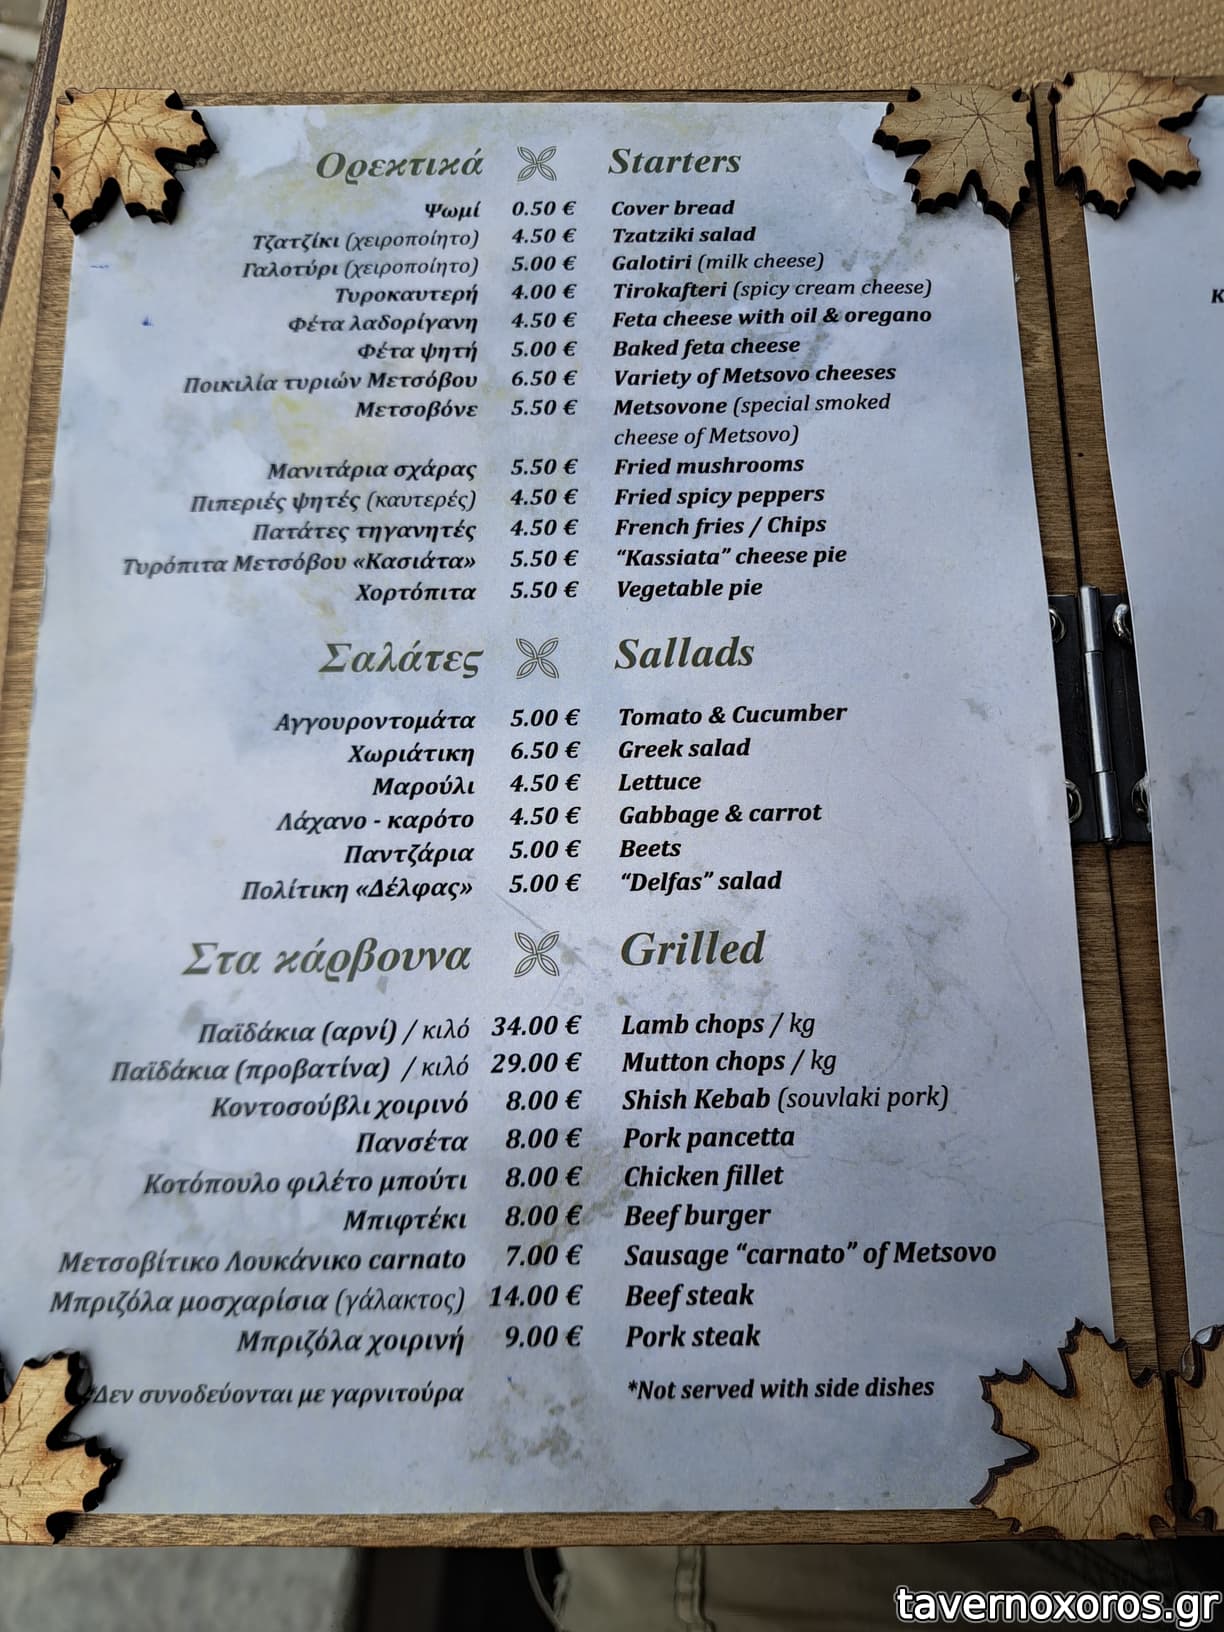 Ορεκτικά Starters
Ψωμί 0.50 € Cover bread
Τζατζίκι (χειροποίητο) 4.50 € Tzatziki salad
Γαλοτύρι (χειροποίητο) 5.00 € Galotiri (milk cheese)
Τυροκαυτερή 4.00 € Tirokafteri (spicy cream cheese)
Φέτα λαδορίγανη 4.50 € Feta cheese with oil & oregano
Φέτα ψητή 5.00 € Baked feta cheese
Ποικιλία τυριών Μετσόβου 6.50 € Variety of Metsovo cheeses
Μετσοβόνε 5.50 € Metsovone (special smoked
cheese of Metsovo)
Μανιτάρια σχάρας 5.50 € Fried mushrooms
Πιπεριές ψητές (καυτερές) 4.50 € Fried spicy peppers
Πατάτες τηγανητές 4.50 € French fries / Chips
Τυρόπιτα Μετσόβου «Κασιάτα» 5.50 € “Kassiata” cheese pie
Χορτόπιτα 5.50 € Vegetable pie
Σαλάτες Sallads
Αγγουροντομάτα 5.00 € Tomato & Cucumber
Χωριάτικη 6.50 € Greek salad
Μαρούλι 4.50 € Lettuce
Λάχανο - καρότο 4.50 € Gabbage & carrot
Παντζάρια 5.00 € Beets
Πολίτικη «Δέλφας» 5.00 € “Delfas” salad
Στα κάρβουνα Grilled
Παϊδάκια (αρνί) / κιλό 34.00 € Lamb chops / kg
Παϊδάκια (προβατίνα) / κιλό 29.00 € Mutton chops / kg
Κοντοσούβλι χοιρινό 8.00 € Shish Kebab (souvlaki pork)
Πανσέτα 8.00 € Pork pancetta
Κοτόπουλο φιλέτο μπούτι 8.00 € Chicken fillet
Μπιφτέκι 8.00 € Beef burger
Μετσοβίτικο Λουκάνικο carnato 7.00 € Sausage “carnato” of Metsovo
Μπριζόλα μοσχαρίσια (γάλακτος) 14.00 € Beef steak
Μπριζόλα χοιρινή 9.00 € Pork steak
*Δεν συνοδεύονται με γαρνιτούρα *Not served with side dishes
tavernoxoros.gr